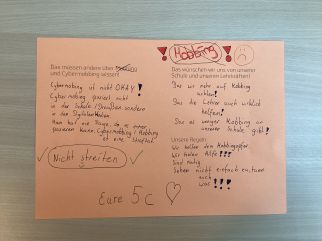 ! Mobbing !
Das müssen andere über Mobbing
und Cybermobbing wissen!
Cybermobing ist nicht OKAY!
Cybermobing passiert nicht
in der Schule/Draußen sondern
in den Digitalen Medien
Man hat nie Ruhe, da es immer
passieren kann. Cybermobbing/Mobbing
ist eine Straftat
Nicht streiten
Das wünschen wir uns von unserer
Schule und unseren Lehrkräften!
Das wir mehr auf Mobbing
achten!
Das die Lehrer auch wirklich
helfen!
Das es weniger Mobbing an
unserer Schule gibt!
Unsere Regeln:
Wir helfen dem Mobbingopfer
Wir holen Hilfe!!!
Sind mutig
Sehen nicht einfach zu, tuen
auch
was!!!
Eure 5c